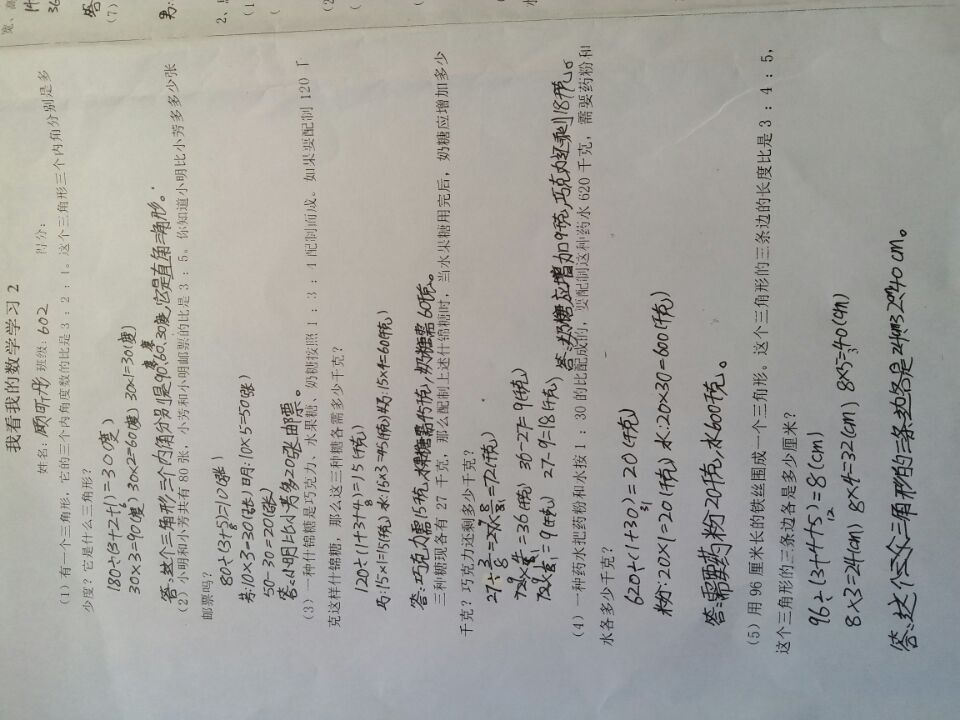 我看我的数学学习 2
姓名: 顾昕彤 班级: 602 得分:
(1) 有一个三角形, 它的三个内角度数的比是 3 : 2 : 1。这个三角形三个内角分别是多
少度? 它是什么三角形?
180÷(3+2+1)=30(度)
6
30×3=90(度) 30×2=60(度) 30×1=30(度)
答:这个三角形三个内角分别是90度,60度,30度,它是直角三角形。
(2) 小明和小芳共有 80 张, 小芳和小明邮票的比是 3 : 5。你知道小明比小芳多多少张
邮票吗?
80÷(3+5)=10(张)
8
芳:10×3=30(张) 明:10×5=50(张)
50-30=20(张)
答:小明比小芳多20张邮票。
(3) 一种什锦糖是巧克力、水果糖、奶糖按照 1 : 3 : 4 配制而成。如果要配制 120 千
克这样什锦糖, 那么这三种糖各需多少千克?
120÷(1+3+4)=15(千克)
8
巧:15×1=15(千克) 水:15×3=45(千克) 奶:15×4=60(千克)
答:巧克力需15千克,水果糖需45千克,奶糖需60千克。
三种糖现各有 27 千克, 那么配制上述什锦糖时, 当水果糖用完后, 奶糖应增加多少
千克? 巧克力还剩多少千克?
27÷3/8=27×8/3=72(千克)
72×4/8=36(千克) 36-27=9(千克)
72×1/8=9(千克) 27-9=18(千克)
答:奶糖应增加9千克,巧克力还剩18千克。
(4) 一种药水把药粉和水按 1 : 30 的比配成的, 要配制这种药水 620 千克, 需要药粉和
水各多少千克?
620÷(1+30)=20(千克)
31
粉:20×1=20(千克) 水:20×30=600(千克)
答:需要药粉20千克,水600千克。
(5) 用 96 厘米长的铁丝围成一个三角形。这个三角形的三条边的长度比是 3 : 4 : 5,
这个三角形的三条边各是多少厘米?
96÷(3+4+5)=8(cm)
12
8×3=24(cm) 8×4=32(cm) 8×5=40(cm)
答:这个三角形的三条边各是24cm 32cm 40cm。